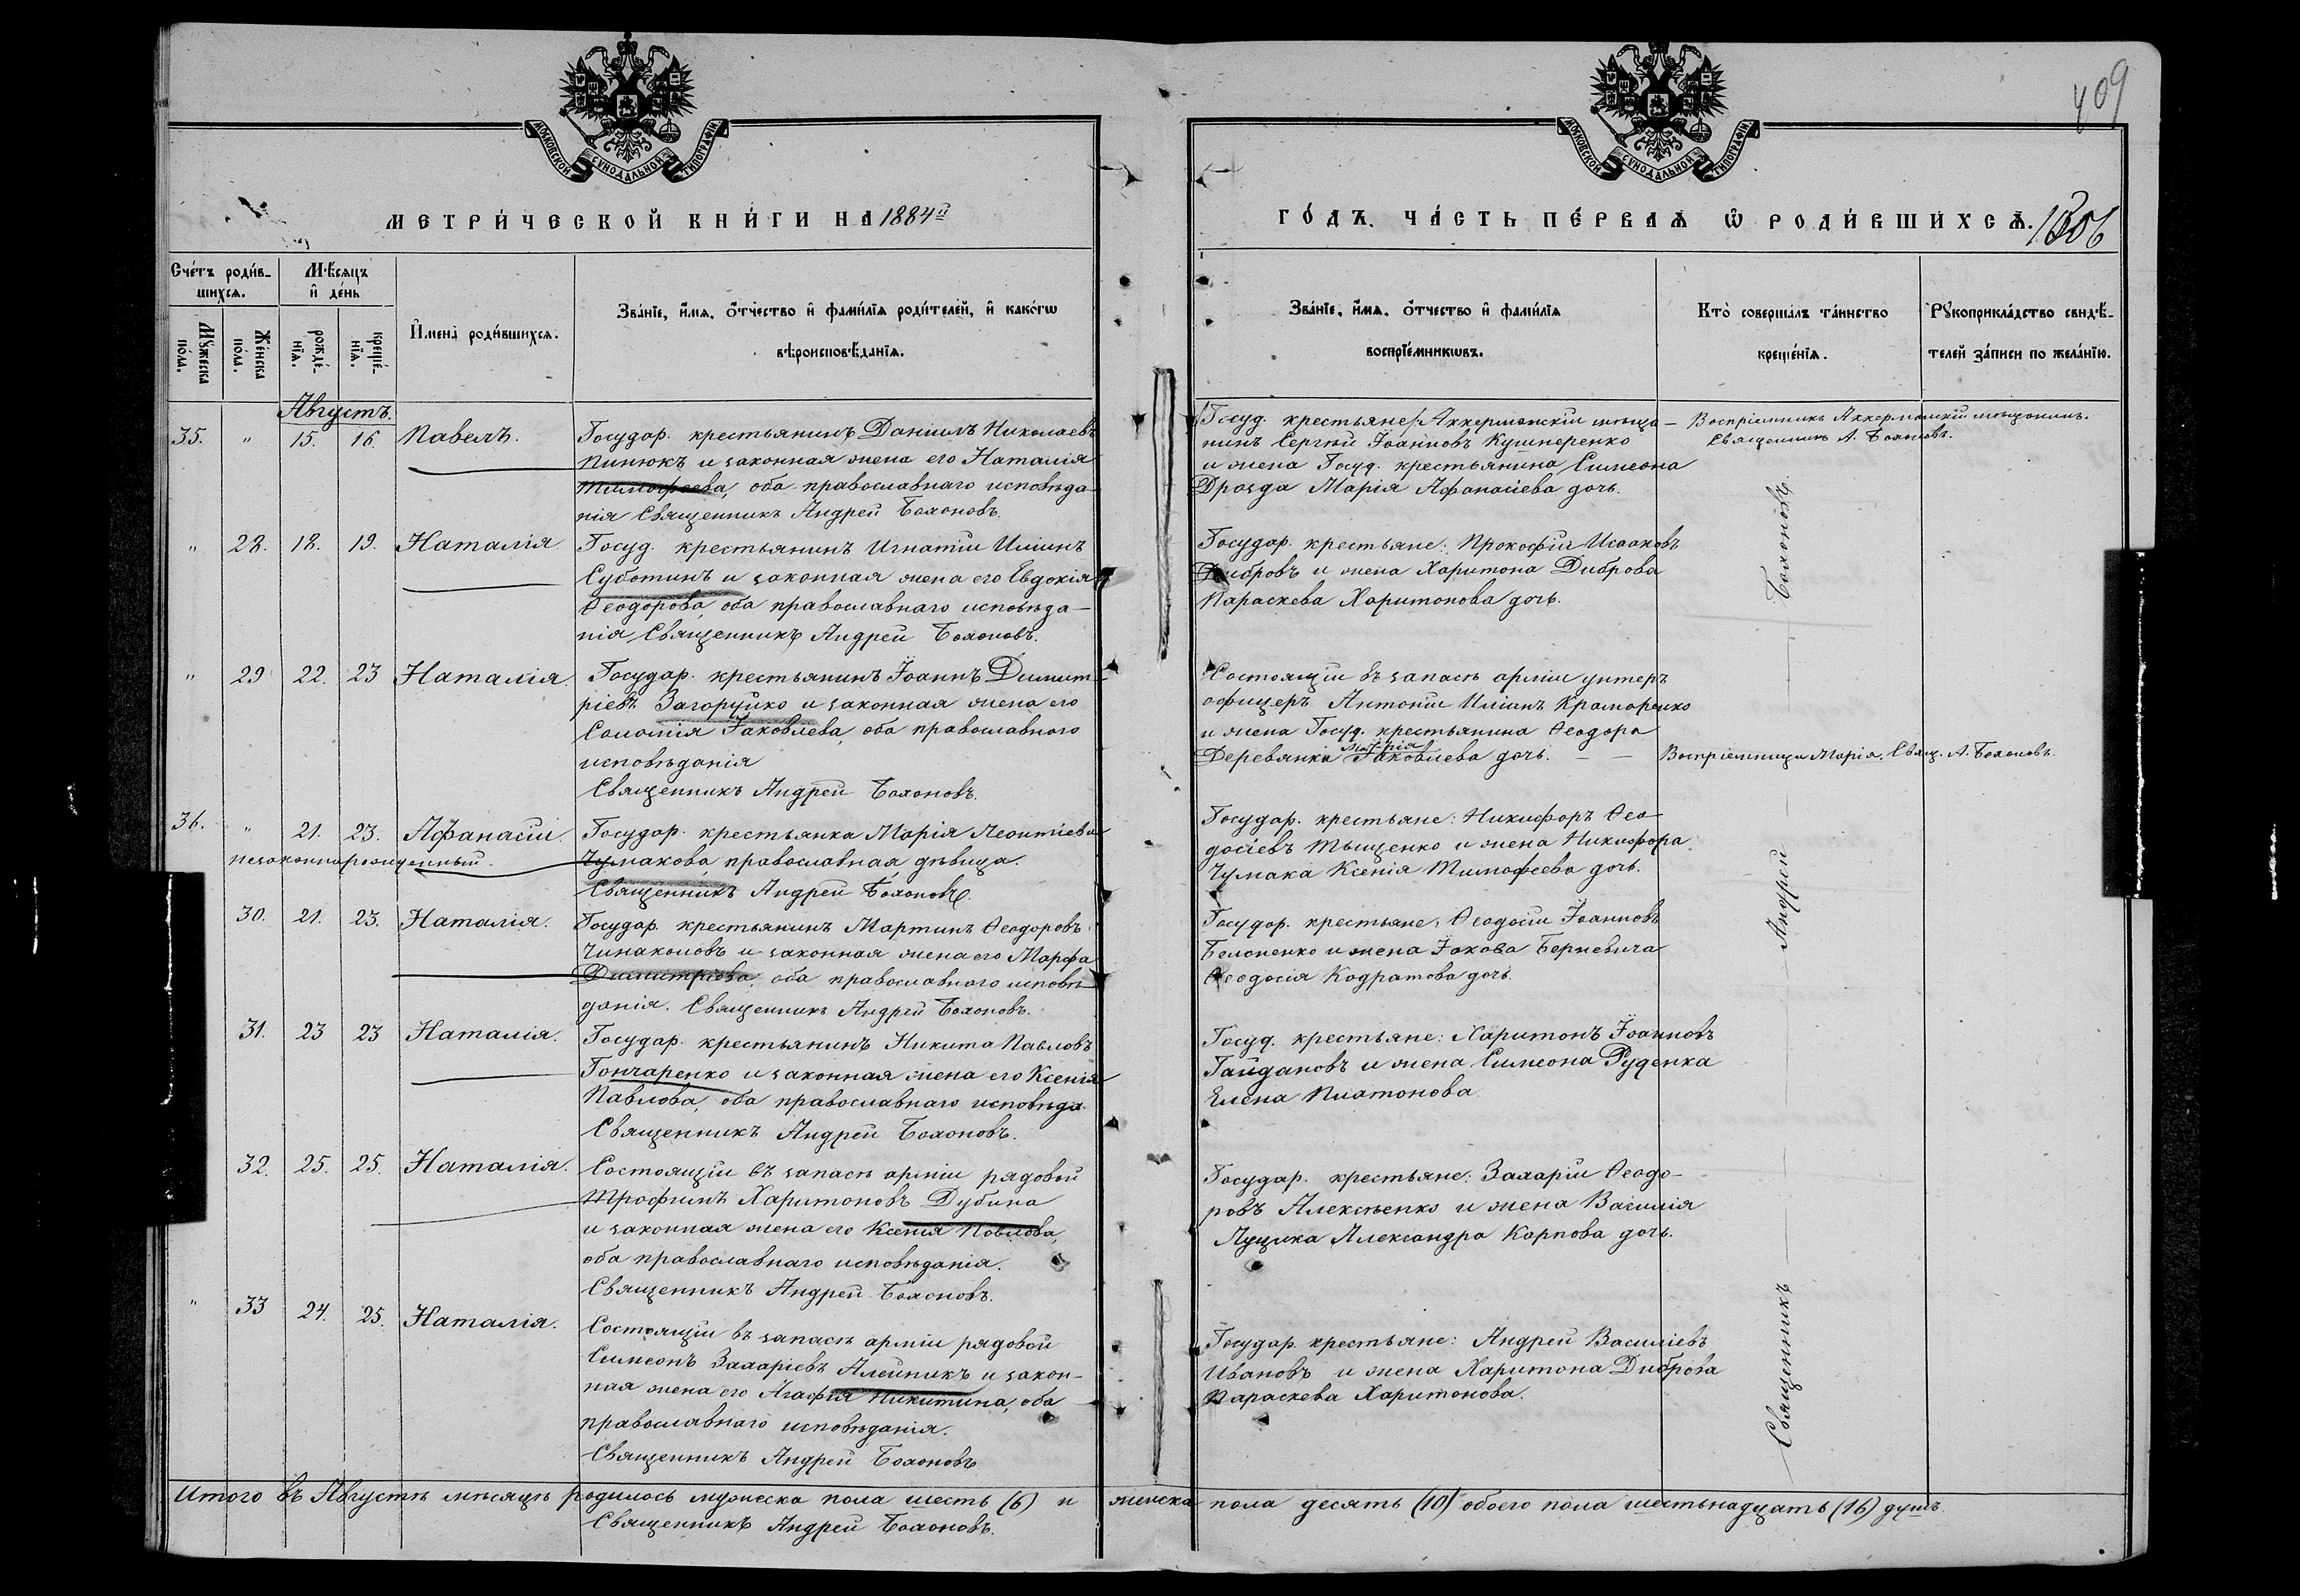 409
МОСКОВСКОЙ СУНОДАЛЬНОЙ ТИПОГРАФІИ
МОСКОВСКОЙ СУНОДАЛЬНОЙ ТИПОГРАФІИ
МЕТРИ́ЧЕСКОЙ КНИ́ГИ НА 1884й
ГО́ДЪ. ЧА́СТЬ ПЕ́РВАѦ Ѡ РОДИ́ВШИХСѦ.
Сче́тъ роди́в-
шихсѧ.
Мѣ́сѧцъ
и҆ де́нь
Мꙋ́жеска
по́ла.
Же́нска
по́ла.
рожде́-
нїѧ.
креще́-
нїѧ.
И҆мена̀ роди́вшихсѧ.
Зва́нїе, и҆́мѧ, ѻ҆́тчество и҆ фами́лїѧ роди́телей, и҆ како́гѡ
вѣроисповѣ́данїѧ.
Зва́нїе, и҆́мѧ, ѻ҆́тчество и҆ фами́лїѧ
воспрїе́мникѡвъ.
Кто̀ соверша́лъ та́инство
креще́нїѧ.
Рꙋкоприкла́дство свидѣ́-
телей за́писи по жела́нїю.
Августъ.
35. " 15. 16. Павелъ.
Государ. крестьянинъ Даніилъ Николаевъ
Пинюкъ и законная жена его Наталія
Тимофеева, оба православнаго исповѣда-
нія Священникъ Андрей Бохоновъ.
Госуд. крестьяне: Аккерманскій мѣща-
нинъ Сергѣй Іоанновъ Кушнеренко
и жена Госуд. крестьянина Симеона
Дрозда Марія Афанасіева дочь.
Воспріемникъ Аккерманскій мѣщанинъ.
Священникъ А. Бохоновъ.
" 28. 18. 19. Наталія
Госуд. крестьянинъ Игнатій Иліинъ
Суботинъ и законная жена его Евдокія
Ѳеодорова, оба православнаго исповѣда-
нія Священникъ Андрей Бохоновъ.
Государ. крестьяне: Прокофій Исааковъ
Дибровъ и жена Харитона Диброва
Параскева Харитонова дочь.
" 29 22. 23 Наталія.
Государ. крестьянинъ Іоаннъ Димит-
ріевъ Загоруйко и законная жена его
Соломія Іаковлева, оба православнаго
исповѣданія
Священникъ Андрей Бохоновъ.
Состоящій въ запасѣ арміи унтеръ
офицеръ Антоній Иліинъ Крамаренко
и жена Госуд. крестьянина Ѳеодора
Деревянка Марія Іаковлева дочь.
Воспріемница Марія. Свящ. А. Бохоновъ.
36. " 21. 23. Афанасій
незаконнорожденный
Государ. крестьянка Марія Леонтіева
Чумакова, православная дѣвица.
Священникъ Андрей Бохоновъ.
Государ. крестьяне: Никифоръ Ѳео-
досіевъ Тыщенко и жена Никифора
Чумака Ксенія Тимофеева дочь.
30. 21. 23. Наталія.
Государ. крестьянинъ Мартинъ Ѳеодоровъ
Чинакаловъ и законная жена его Марфа
Димитріева, оба православнаго исповѣ-
данія. Священникъ Андрей Бохоновъ.
Государ. крестьяне: Ѳеодосій Іоанновъ
Белоненко и жена Іакова Берневича
Ѳеодосія Кодратова дочь.
31. 23 23 Наталія.
Государ. крестьянинъ Никита Павловъ
Гончаренко и законная жена его Ксенія
Павлова, оба православнаго исповѣда-
Священникъ Андрей Бохоновъ.
Госуд. крестьяне: Харитонъ Іоанновъ
Гайдановъ и жена Симеона Руденка
Елена Платонова
32. 25. 25. Наталія.
Состоящій въ запасѣ арміи рядовой
Трофимъ Харитоновъ Дубина
и законная жена его Ксенія Павлова,
оба православнаго исповѣданія.
Священникъ Андрей Бохоновъ.
Государ. крестьяне: Захарій Ѳеодо-
ровъ Алексѣенко и жена Василія
Луцика Александра Карпова дочь.
" 33 24. 25. Наталія.
Состоящій въ запасѣ арміи рядовой
Симеонъ Захаріевъ Алейникъ и закон-
ная жена его Агафія Никитина, оба
православнаго исповѣданія.
Священникъ Андрей Бохоновъ
Государ. крестьяне: Андрей Василіевъ
Ивановъ и жена Харитона Диброва
Параскева Харитонова.
Священникъ Андрей Бохоновъ.
Итого въ Августѣ мѣсяцѣ родилось мужеска пола шесть (6) и женска пола десять (10) обоего пола шестьнадцать (16) душъ.
Священникъ Андрей Бохоновъ.